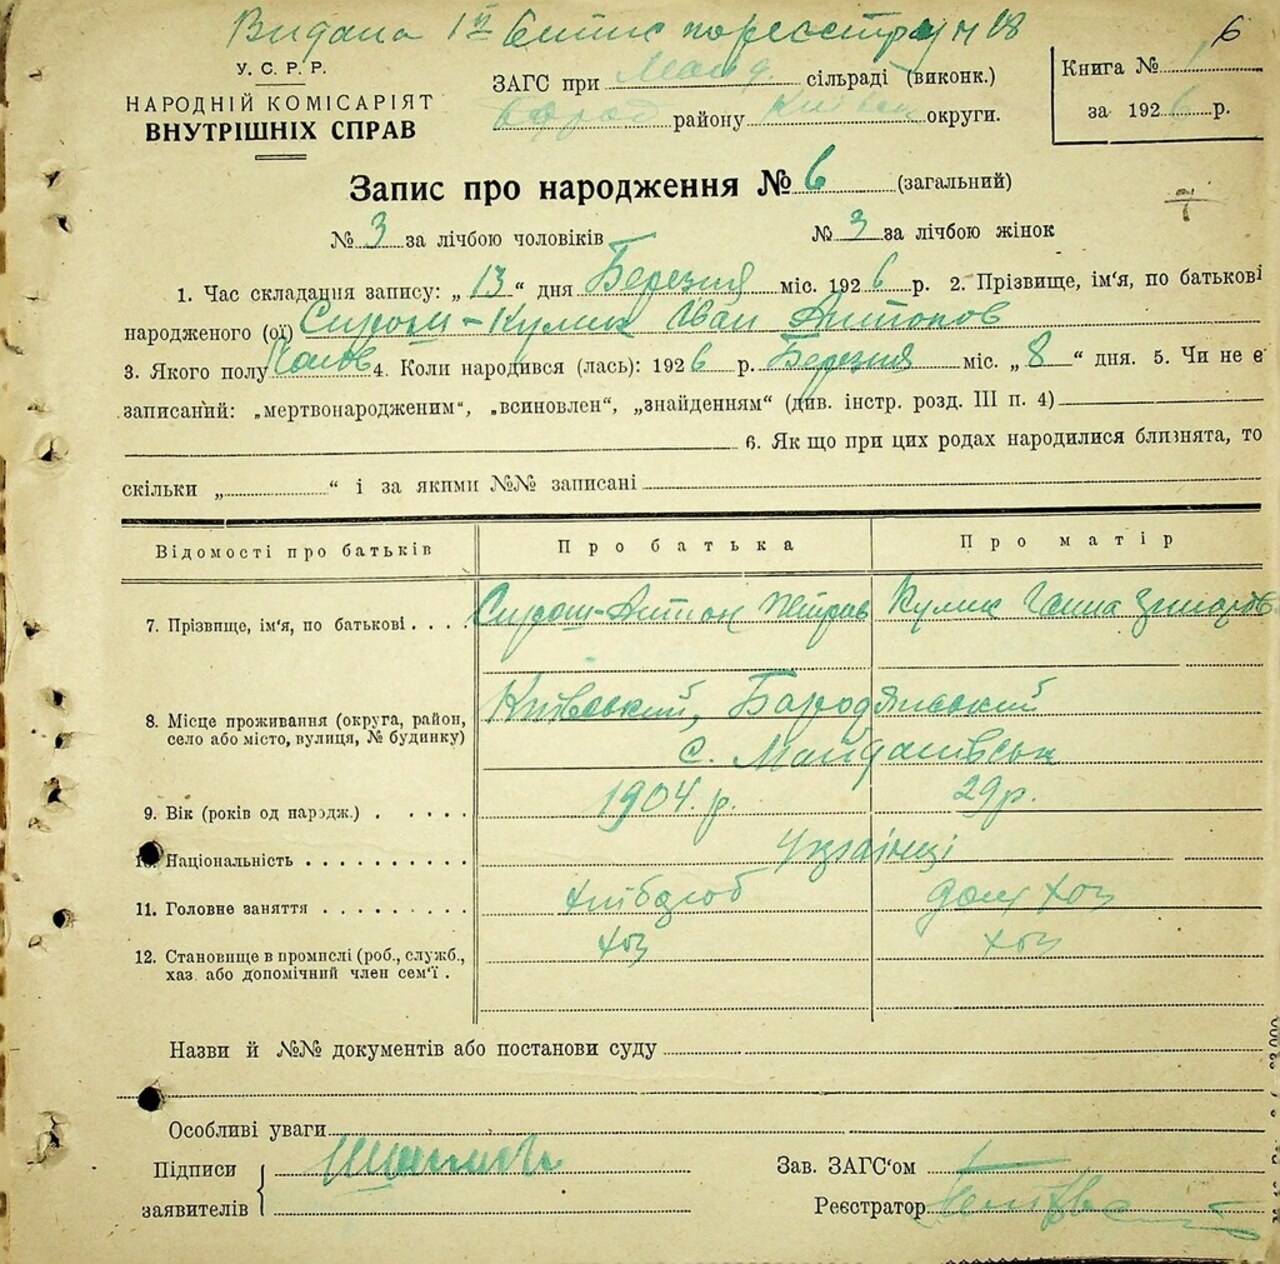 Видана 1й Витис по реєстру № 18
6
У. С. Р. Р.
НАРОДНІЙ КОМІСАРІЯТ
ВНУТРІШНІХ СПРАВ
ЗАГС при Майд. сільраді (виконк.)
Бород району Київськ округи.
Книга № 1
за 1926 р.
Запис про народження № 6 (загальний)
№ 3 за лічбою чоловіків № 3 за лічбою жінок
1. Час складання запису: „13“ дня Березня міс. 1926 р. 2. Прізвище, ім‘я, по батькові
народженого (ої) Сирош-Кулик Іван Антонов
3. Якого полу 4. Коли народився (лась): 1926 р. Березня міс. „8“ дня. 5. Чи не є
записаний: „мертвонародженим“, „всиновлен“, „знайденням“ (див. інстр. розд. III п. 4)
6. Як що при цих родах народилися близнята, то
скільки „ “ і за якими №№ записані
Відомості про батьків Про батька Про матір
7. Прізвище, ім‘я, по батькові . . . . Сирош-Антон Петров Кулик Ганна
8. Місце проживання (округа, район, Київський, Бародянський
село або місто, вулиця, № будинку) с. Майданівськ
9. Вік (років од народж.) . . . . . 1904. р. 29 р.
10. Національність . . . . . . . . . . Українці
11. Головне заняття . . . . . . . . . хлібороб дом хоз
12. Становище в промислі (роб., служб., хоз хоз
хаз. або допомічний член сем‘ї .
Назви й №№ документів або постанови суду
Особливі уваги
Підписи
заявителів
Зав. ЗАГС‘ом
Реєстратор